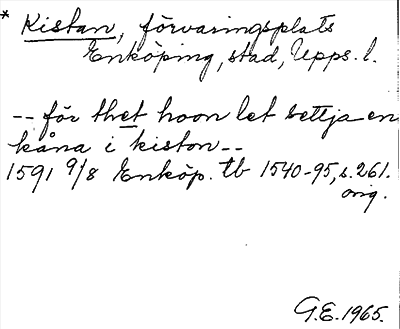 * Kistan, förvaringsplats
Enköping, stad, Upps. l.
-- för thet hoon let settja en
kåna i kiston --
1591 9/8 Enköp. tb 1540-95, s. 261.
orig.
G.E. 1965.